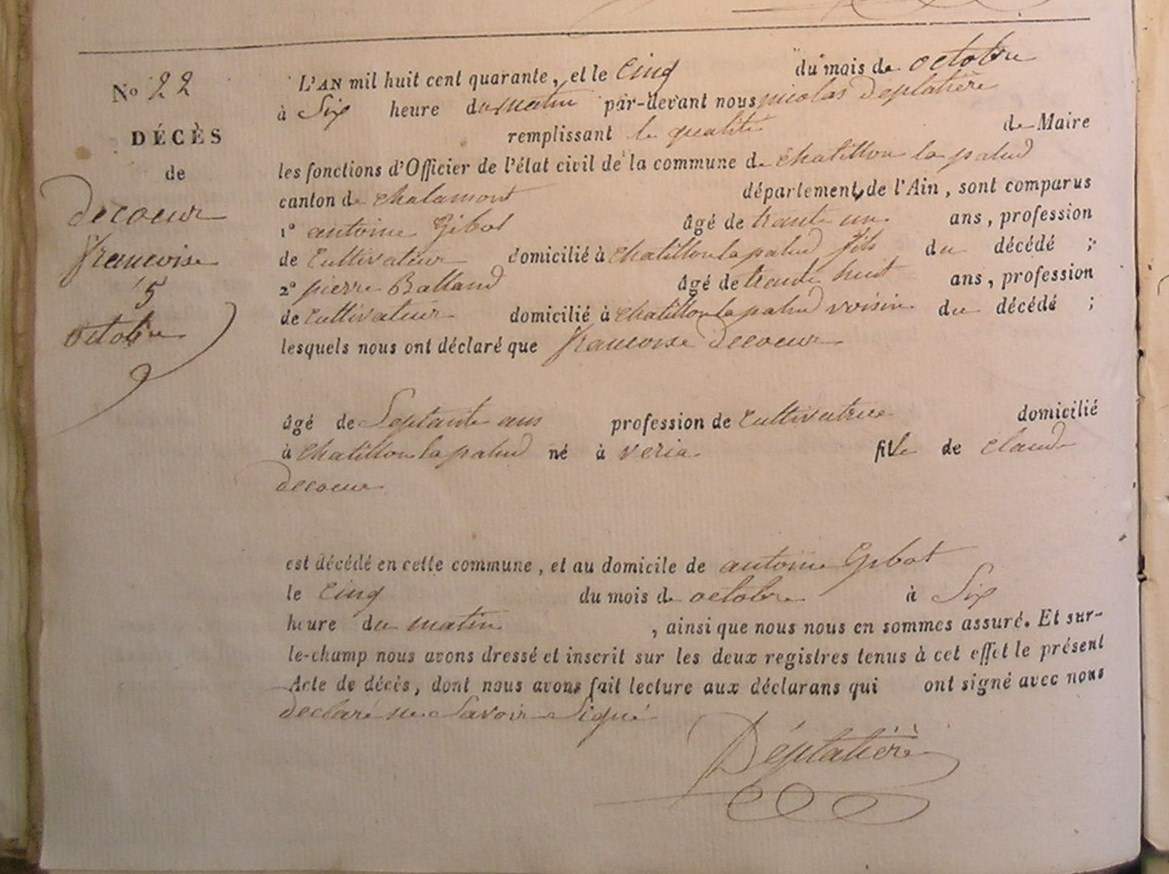 No 22
DÉCÈS
de
decoeur
francoise
5
octobre
L'AN mil huit cent quarante, et le cinq du mois de octobre
à Six heure du matin par-devant nous nicolas Deplatière
remplissant la qualité de Maire
les fonctions d'Officier de l'état civil de la commune de chatillon la palud
canton de chalamont département de l'Ain, sont comparus
1° antoine Gibot âgé de trante un ans, profession
de Cultivateur domicilié à chatillon la palud fils du décédé ;
2° pierre Balland âgé de trante huit ans, profession
de Cultivateur domicilié à chatillon la palud voisin du décédé ;
lesquels nous ont déclaré que francoise decoeur
âgé de Septante ans profession de Cultivatrice domicilié
à chatillon la palud né à veria fille de claude
decoeur
est décédé en cette commune, et au domicile de antoine Gibot
le cinq du mois de octobre à Six
heure du matin, ainsi que nous nous en sommes assuré. Et sur-
le-champ nous avons dressé et inscrit sur les deux registres tenus à cet effet le présent
Acte de décès, dont nous avons fait lecture aux déclarans qui ont signé avec nous
declaré ne Savoir Signé
Déplatière